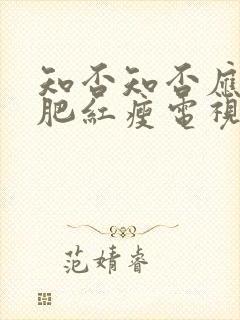 知否知否應
肥紅瘦電視
范婧睿